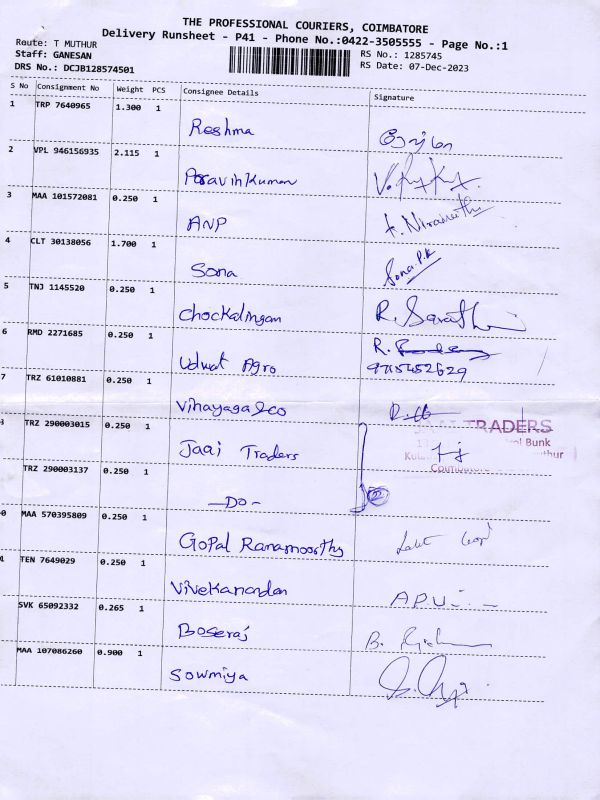 THE PROFESSIONAL COURIERS, COIMBATORE
Delivery Runsheet - P41 - Phone No.:0422-3505555 - Page No.:1
Route: T MUTHUR
Staff: GANESAN
DRS No.: DCJB128574501
RS No.: 1285745
RS Date: 07-Dec-2023
S No Consignment No Weight PCS Consignee Details Signature
1 TRP 7640965 1.300 1
Reshma
2 VPL 946156935 2.115 1
Paravinkumar
3 MAA 101572081 0.250 1
ANP
4 CLT 30138056 1.700 1
Sona Sona.P.K
5 TNJ 1145520 0.250 1
Chockalingam R. Sarathi
6 RMD 2271685 0.250 1 R.
Agro 9715452629
7 TRZ 61010881 0.250 1
Vinayaga &co
TRZ 290003015 0.250 1 TRADERS
Jaai Traders Bunk
TRZ 290003137 0.250 1
-Do-
0 MAA 570395809 0.250 1
Gopal Ranamoorthy
TEN 7649029 0.250 1
Vivekanandan
SVK 65092332 0.265 1
Boseraj B.
MAA 107086260 0.900 1
Sowmiya